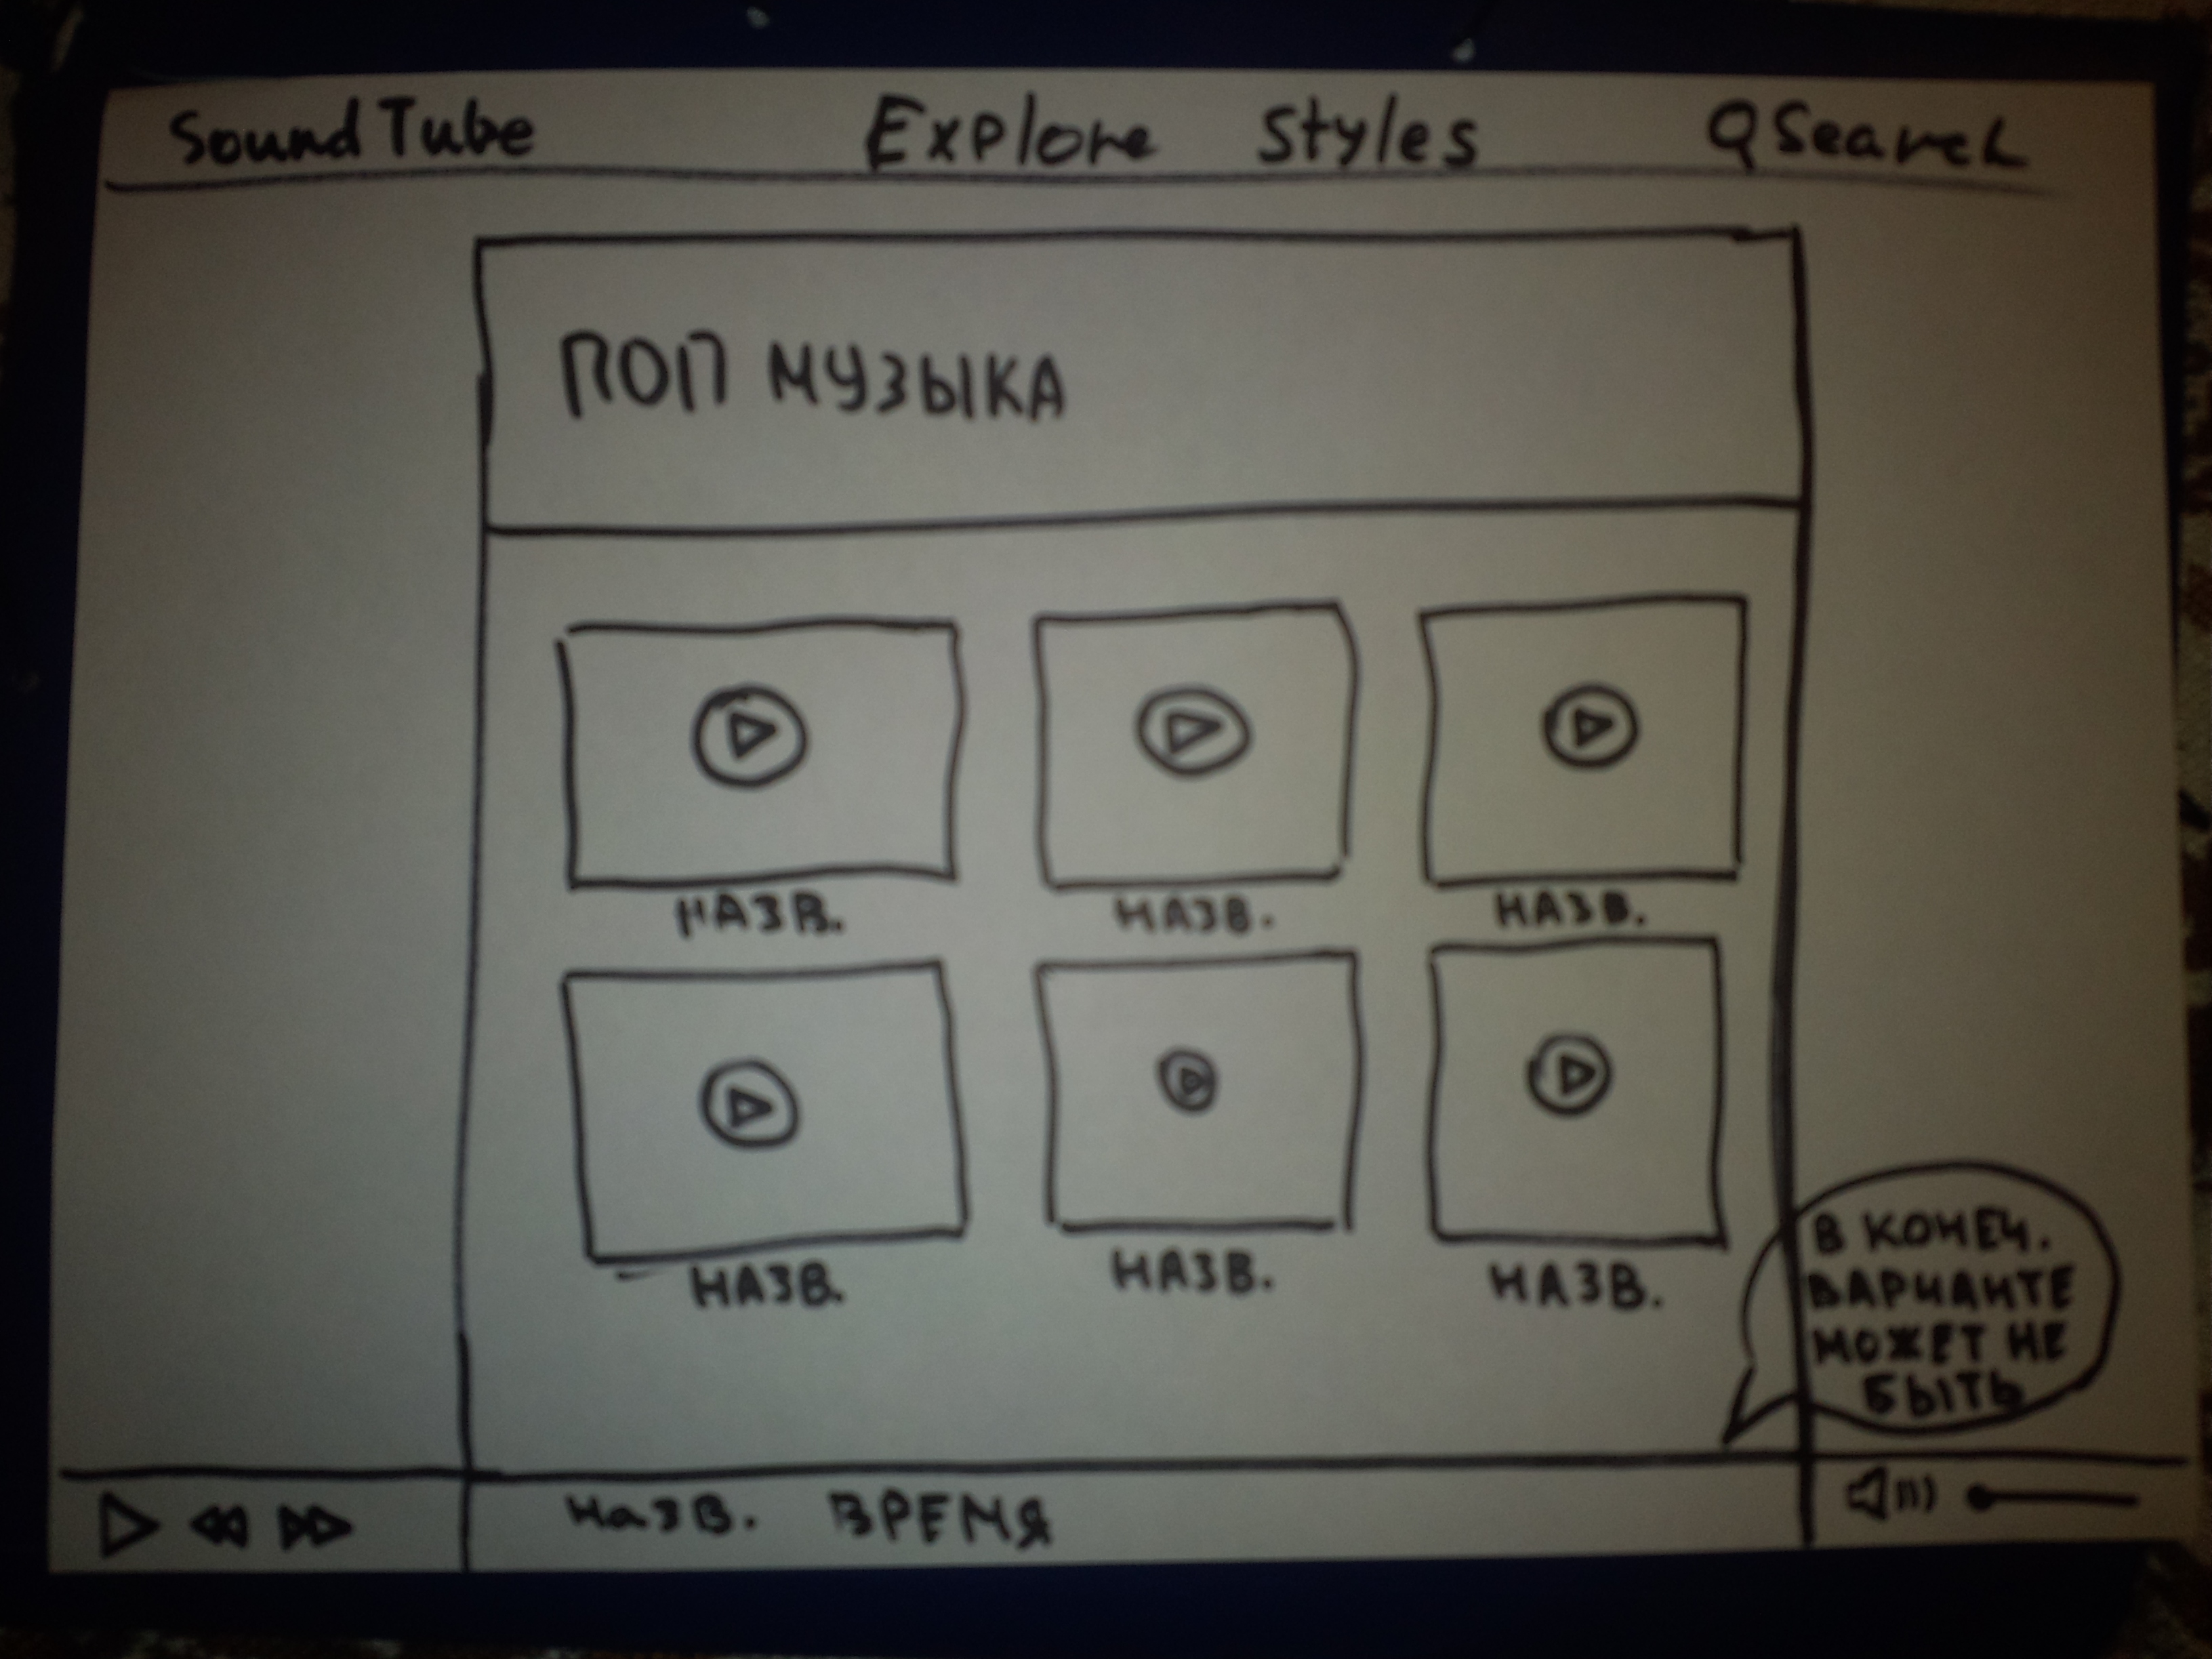 SoundTube Explore Styles Search
ПОП МУЗЫКА
НАЗВ. НАЗВ. НАЗВ.
НАЗВ. НАЗВ. НАЗВ.
В КОНЕЧ.
ВАРИАНТЕ
МОЖЕТ НЕ
БЫТЬ
НаЗВ. ВРЕМЯ